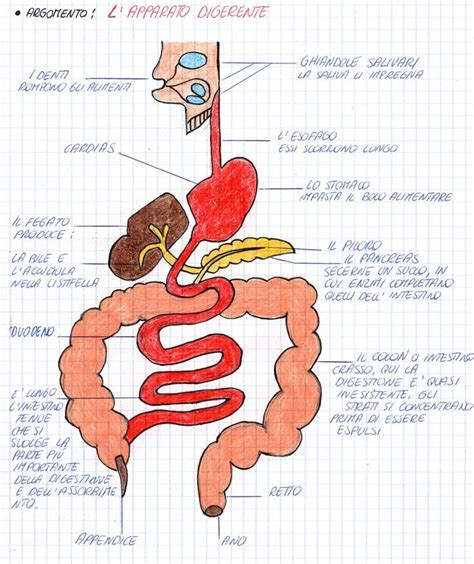 • ARGOMENTO: L'APPARATO DIGERENTE
GHIANDOLE SALIVARI
LA SALIVA LI IMPREGNA
I DENTI
ROMPONO GLI ALIMENTI
L'ESOFAGO
ESSI SCORRONO LUNGO
CARDIAS
LO STOMACO
IMPASTA IL BOLO ALIMENTARE
IL FEGATO
PRODUCE:
LA BILE E
L'ACCUCULA
NELLA CISTIFELLA
IL PILORO
IL PANCREAS
SECERNE UN SUCCO, IN
CUI ENZIMI COMPLETANO
QUELLI DELL'INTESTINO
DUODENO
IL COLON O INTESTINO
CRASSO, QUI LA
DIGESTIONE E' QUASI
INESISTENTE, GLI
STRATI SI CONCENTRANO
PRIMA DI ESSERE
ESPULSI.
E' LUNGO
L'INTESTINO
TENUE
CHE SI
SVOLGE LA
PARTE PIÙ
IMPORTANTE
DELLA DIGESTIONE
E DELL'ASSORBIME
NTO.
RETTO
APPENDICE
ANO